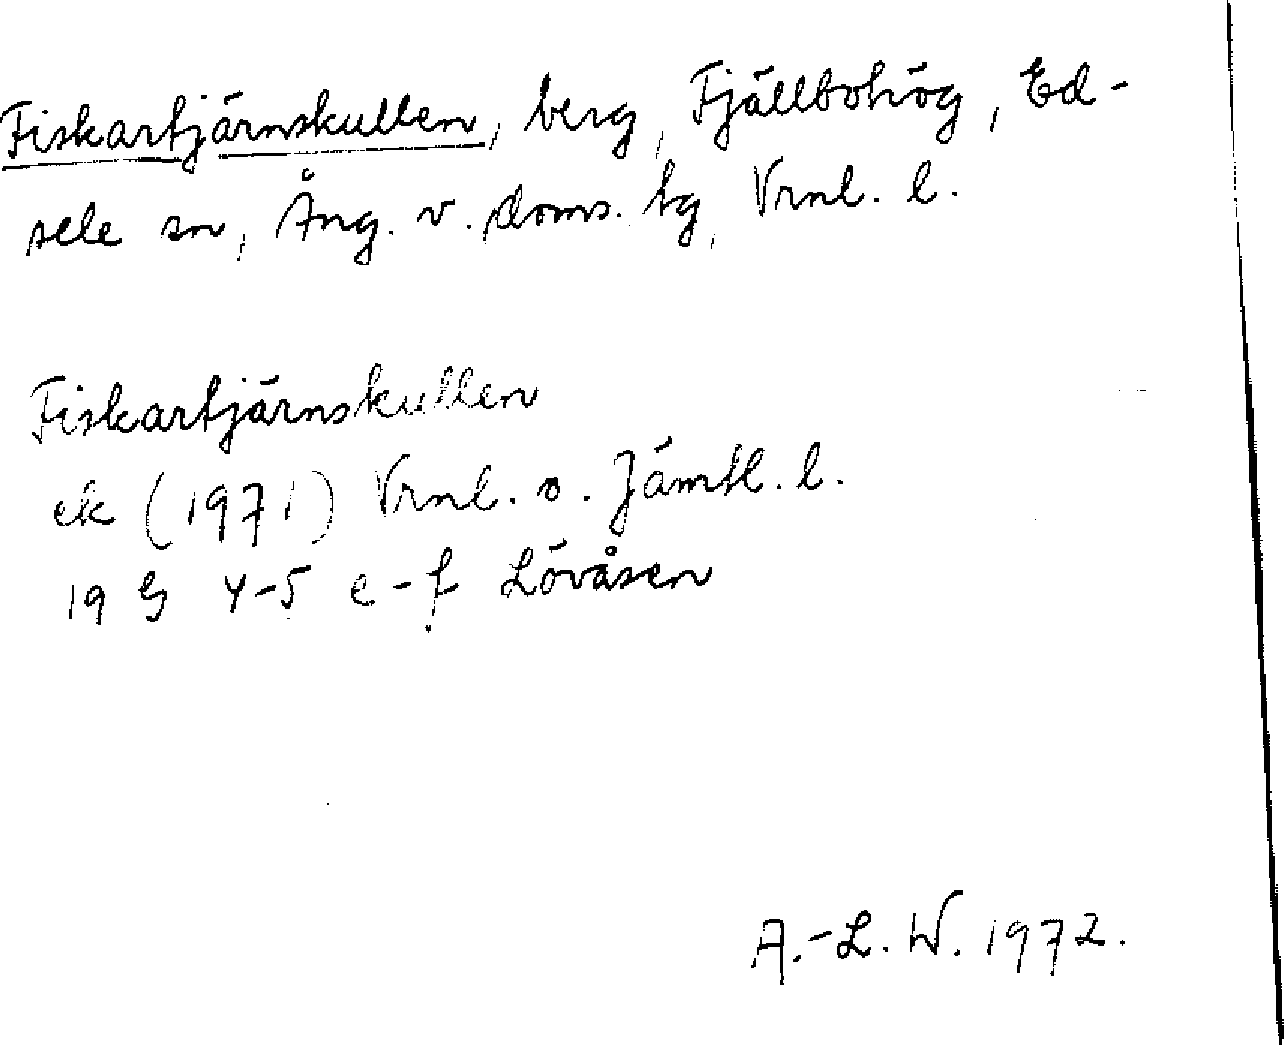 Fiskartjärnskullen, berg, Fjällbohög, Ed-
sele sn, Ång. v. doms. tg, Vrnl. l.
Fiskartjärnskullen
ek (1971) Vrnl. o. Jämtl. l.
19 G 4-5 e-f Lövåsen
A.-L. W. 1972.